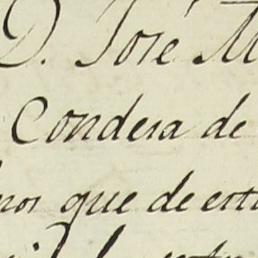 D. José M
Condesa de
nos que de est